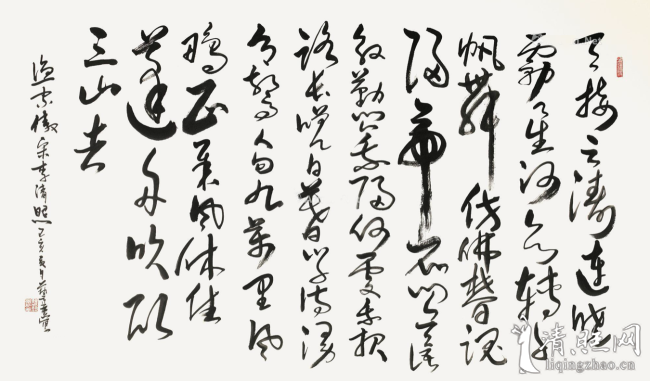 天接云涛连晓
霧星河欲转千
帆舞仿佛梦魂
归帝所闻天语
殷勤问我归何处我报
路长嗟日暮学诗谩
有惊人句九萬里风
鹏正举风休住
蓬舟吹取
三山去
渔家傲宋李清照乙亥夏月
清照网